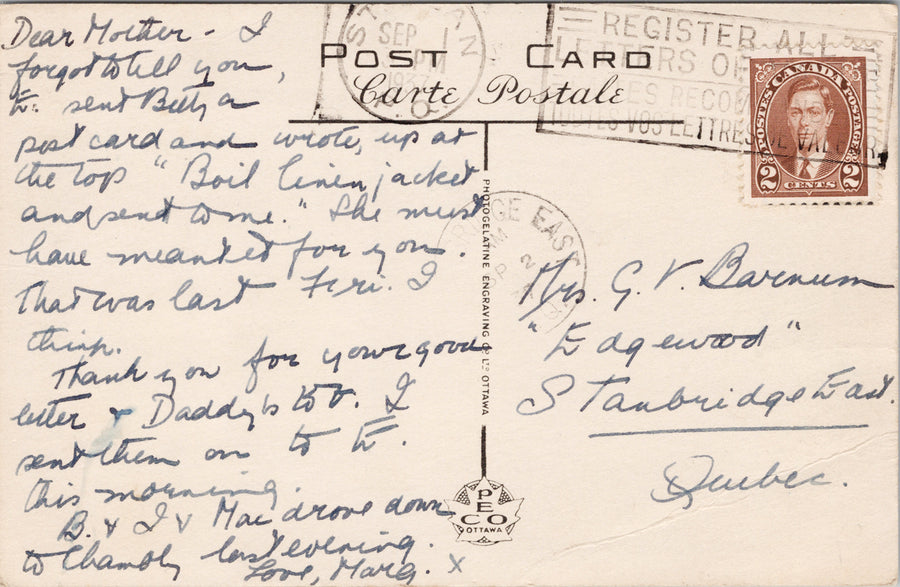 Dear Mother - I
forgot to tell you,
E. sent Betty a
post card and wrote, up at
the top "Boil linen jacket
and send to me." She must
have meant it for you.
That was last Fri. I
think.
Thank you for your good
letter & Daddy's to V. I
sent them on to E.
this morning.
B. & I & Mac drove down
to Chambly last evening.
Love, Marg. x
POST CARD
Carte Postale
SEP
1937
REGISTER ALL
LETTERS OF
RECOM
TOUTES VOS LETTRES DE VALEUR
POSTES CANADA POSTAGE
2 CENTS 2
PHOTOGELATINE ENGRAVING CO. LTD. OTTAWA
RIDGE EAST
PM
2
Mrs. G. V. Barnum
"Edgewood"
Stanbridge East.
Quebec.
PECO
OTTAWA